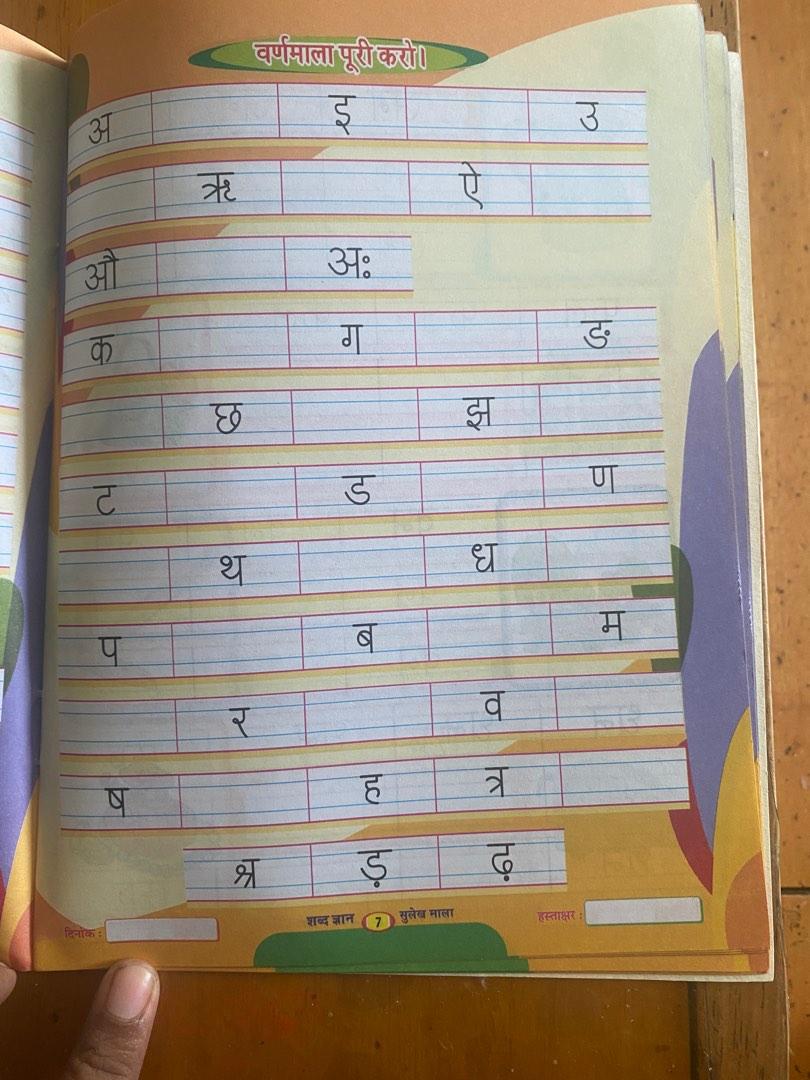 वर्णमाला पूरी करो।
अ इ उ
ऋ ऐ
औ अः
क ग ङ
छ झ
ट ड ण
थ ध
प ब म
र व
ष ह त्र
श्र ड़ ढ़
दिनांक : शब्द ज्ञान 7 सुलेख माला हस्ताक्षर :